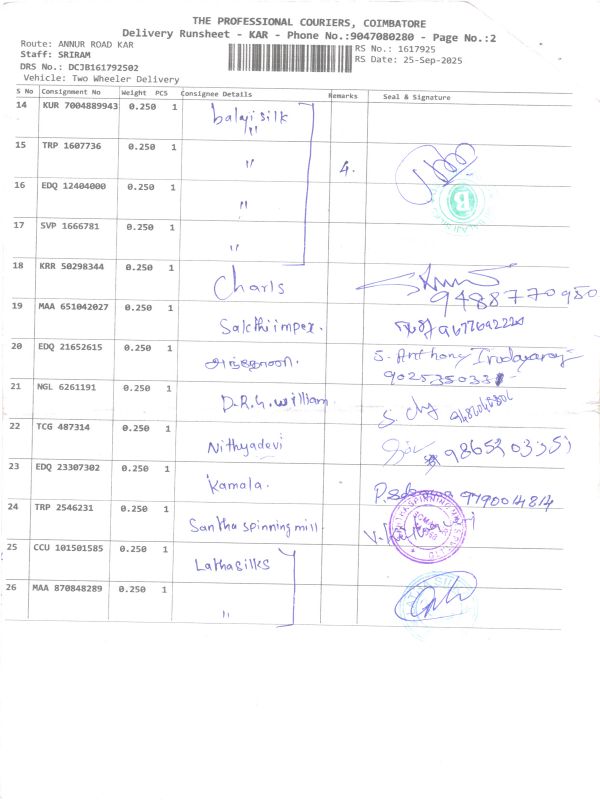 THE PROFESSIONAL COURIERS, COIMBATORE
Delivery Runsheet - KAR - Phone No.:9047080280 - Page No.:2
Route: ANNUR ROAD KAR
RS No.: 1617925
Staff: SRIRAM
RS Date: 25-Sep-2025
DRS No.: DCJB161792502
Vehicle: Two Wheeler Delivery
S No Consignment No Weight PCS Consignee Details Remarks Seal & Signature
14 KUR 7004889943 0.250 1 balaji silk
"
15 TRP 1607736 0.250 1 " 4.
16 EDQ 12404000 0.250 1 "
17 SVP 1666781 0.250 1 "
18 KRR 50298344 0.250 1 Charls
9488770980
19 MAA 651042027 0.250 1 Sakthi impex.
20 EDQ 21652615 0.250 1 அந்தோணி. S. Anthony Irudayaraj
21 NGL 6261191 0.250 1 D.R.G. william
22 TCG 487314 0.250 1 Nithyadevi
23 EDQ 23307302 0.250 1 Kamala. 9790014814
24 TRP 2546231 0.250 1 Santha spinning mill.
25 CCU 101501585 0.250 1 Latha silks
26 MAA 870848289 0.250 1 "